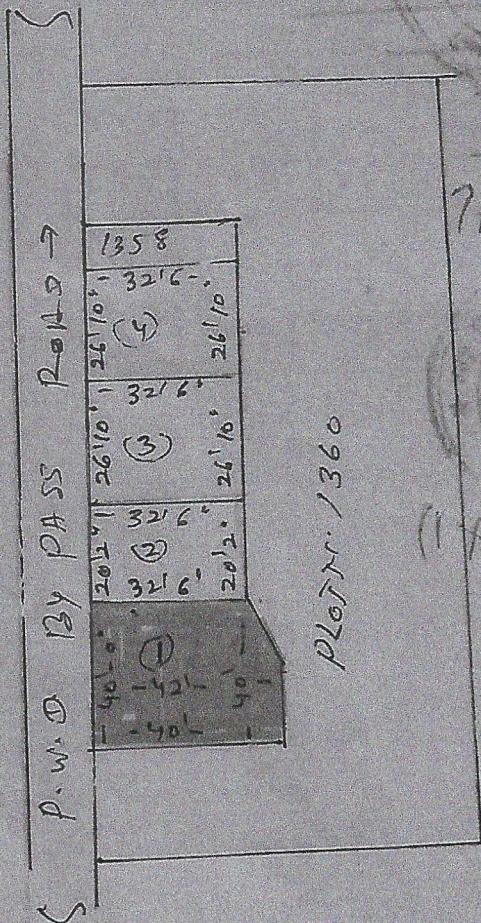 P.W.D By PASS ROAD →
1358
- 32'6 -
26'10"
(4)
26'10"
32'6"
26'10"
(3)
26'10"
32'6"
20'2"
(2)
20'2"
32'6"
40'-0"
(1)
-42'-
40'
-40'-
PLOT Nr. 1360